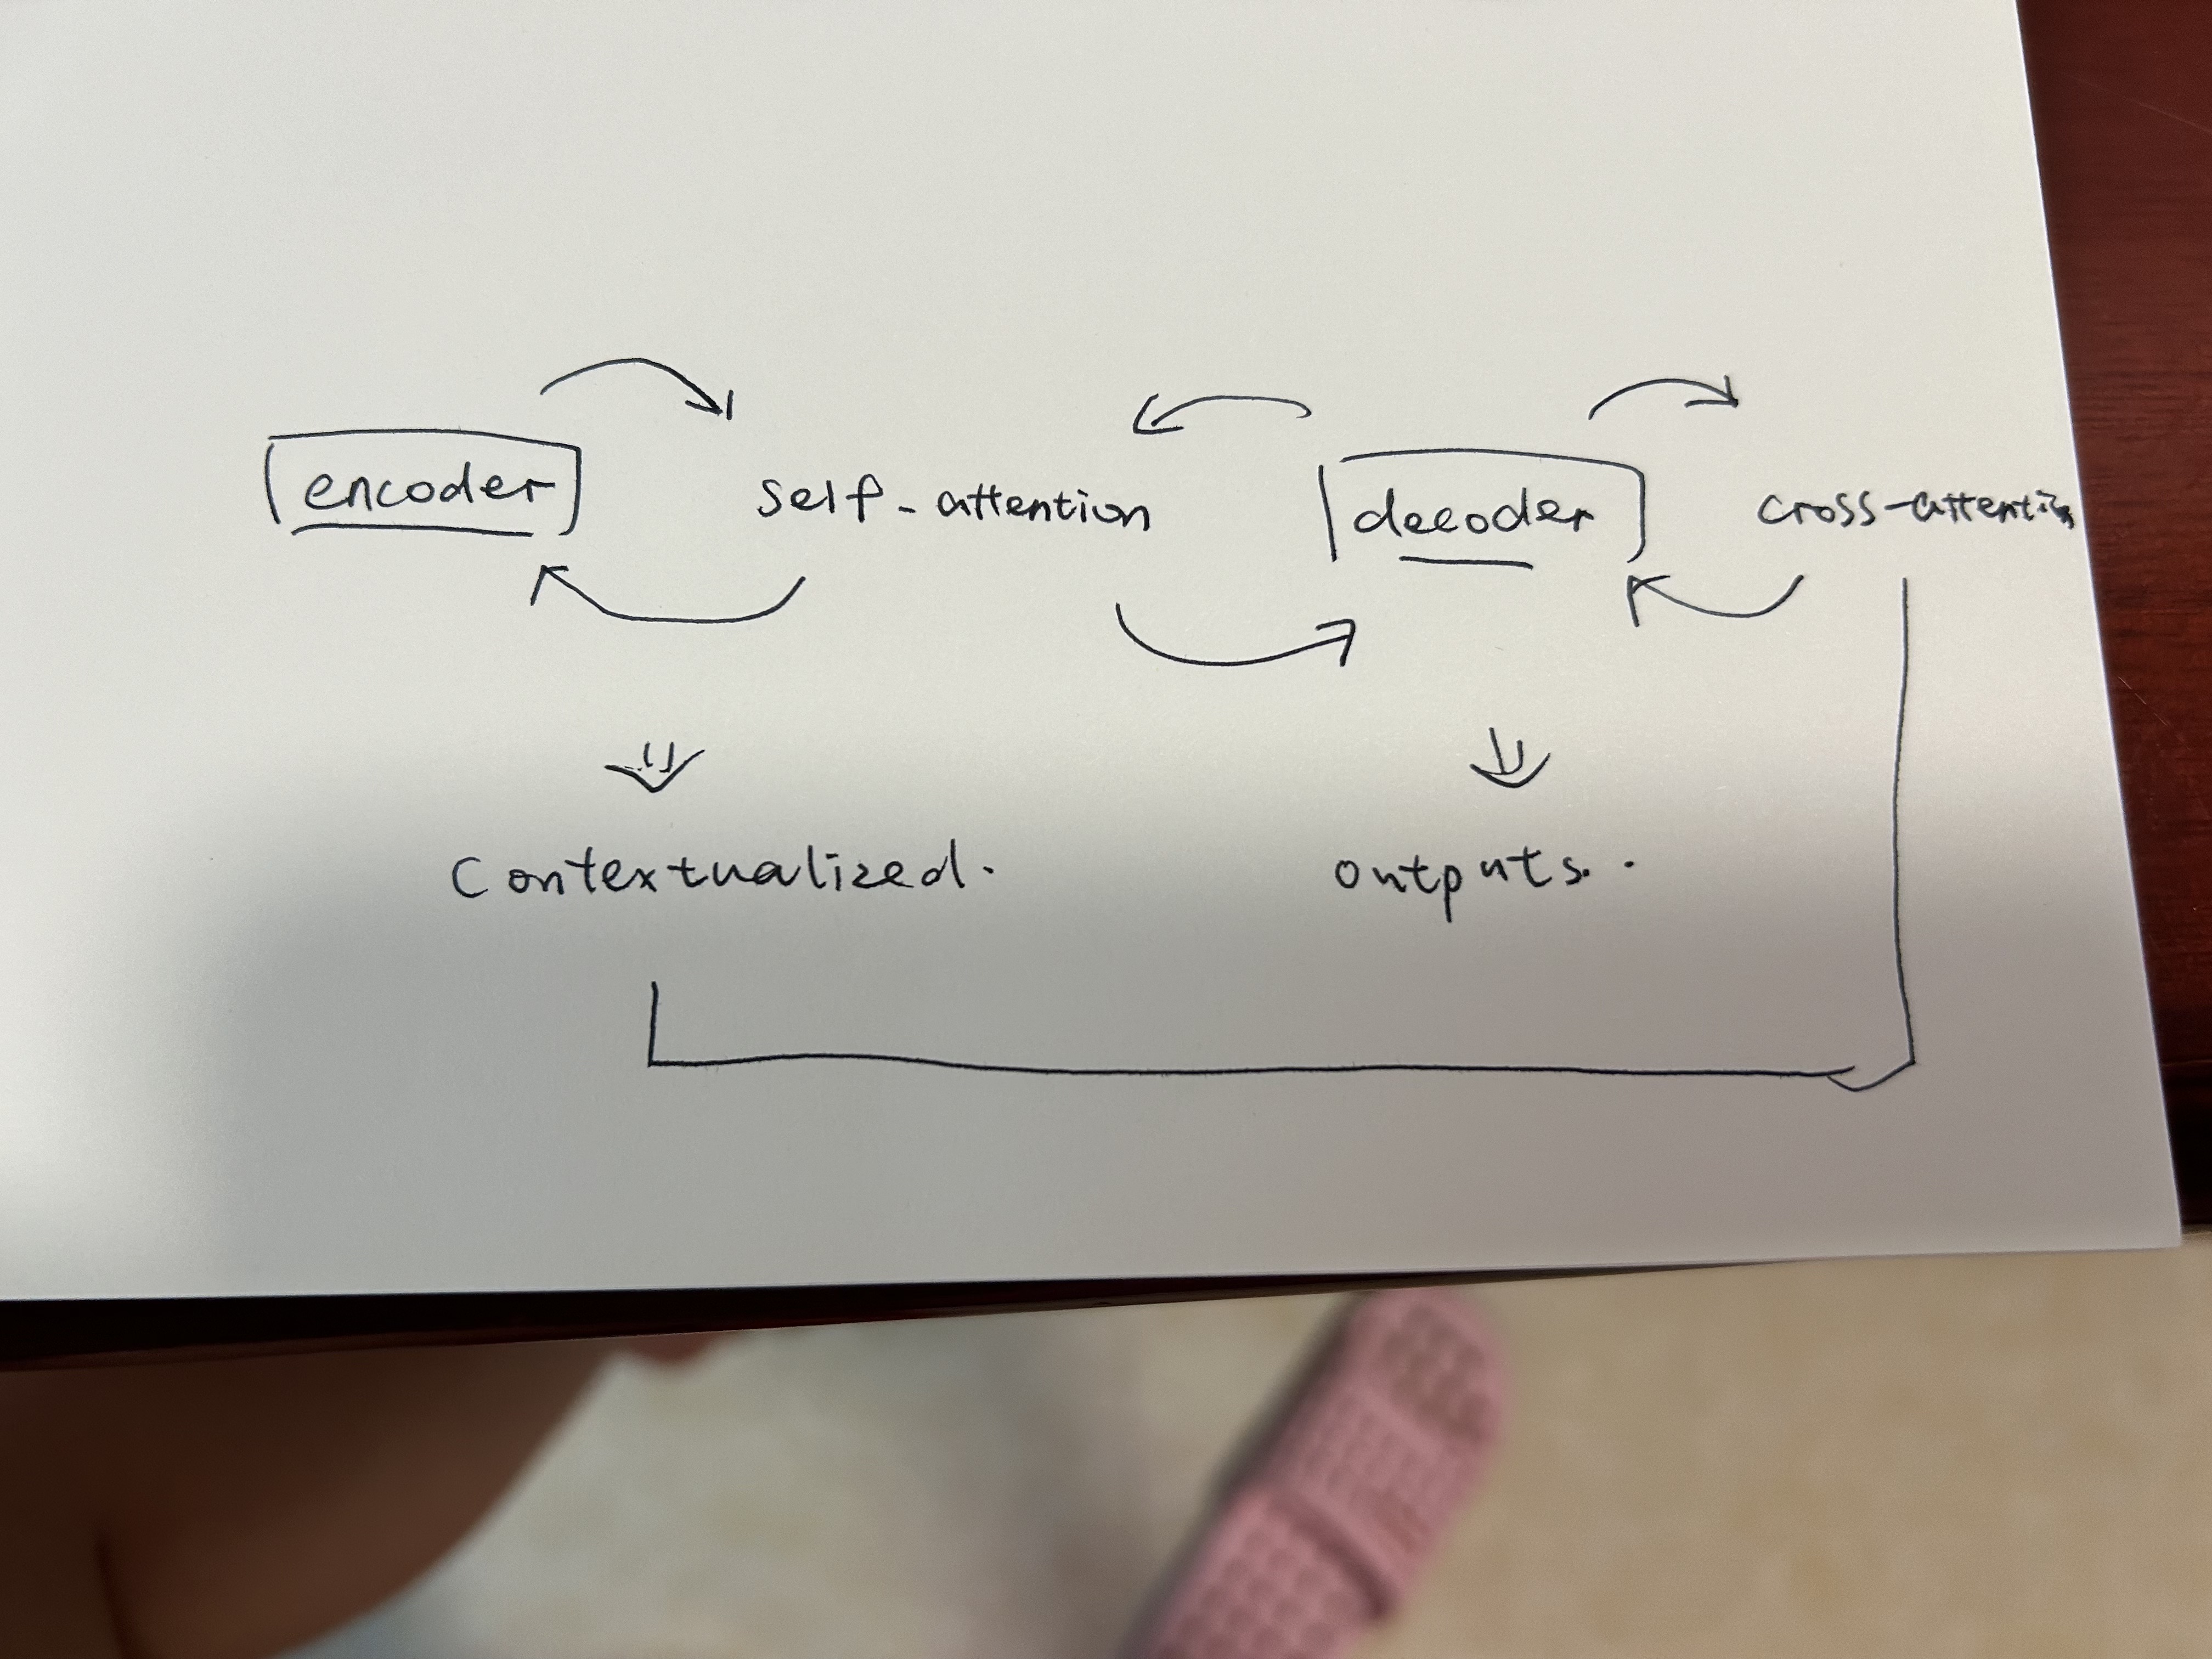 encoder self-attention decoder cross-attention
Contextualized.
outputs.